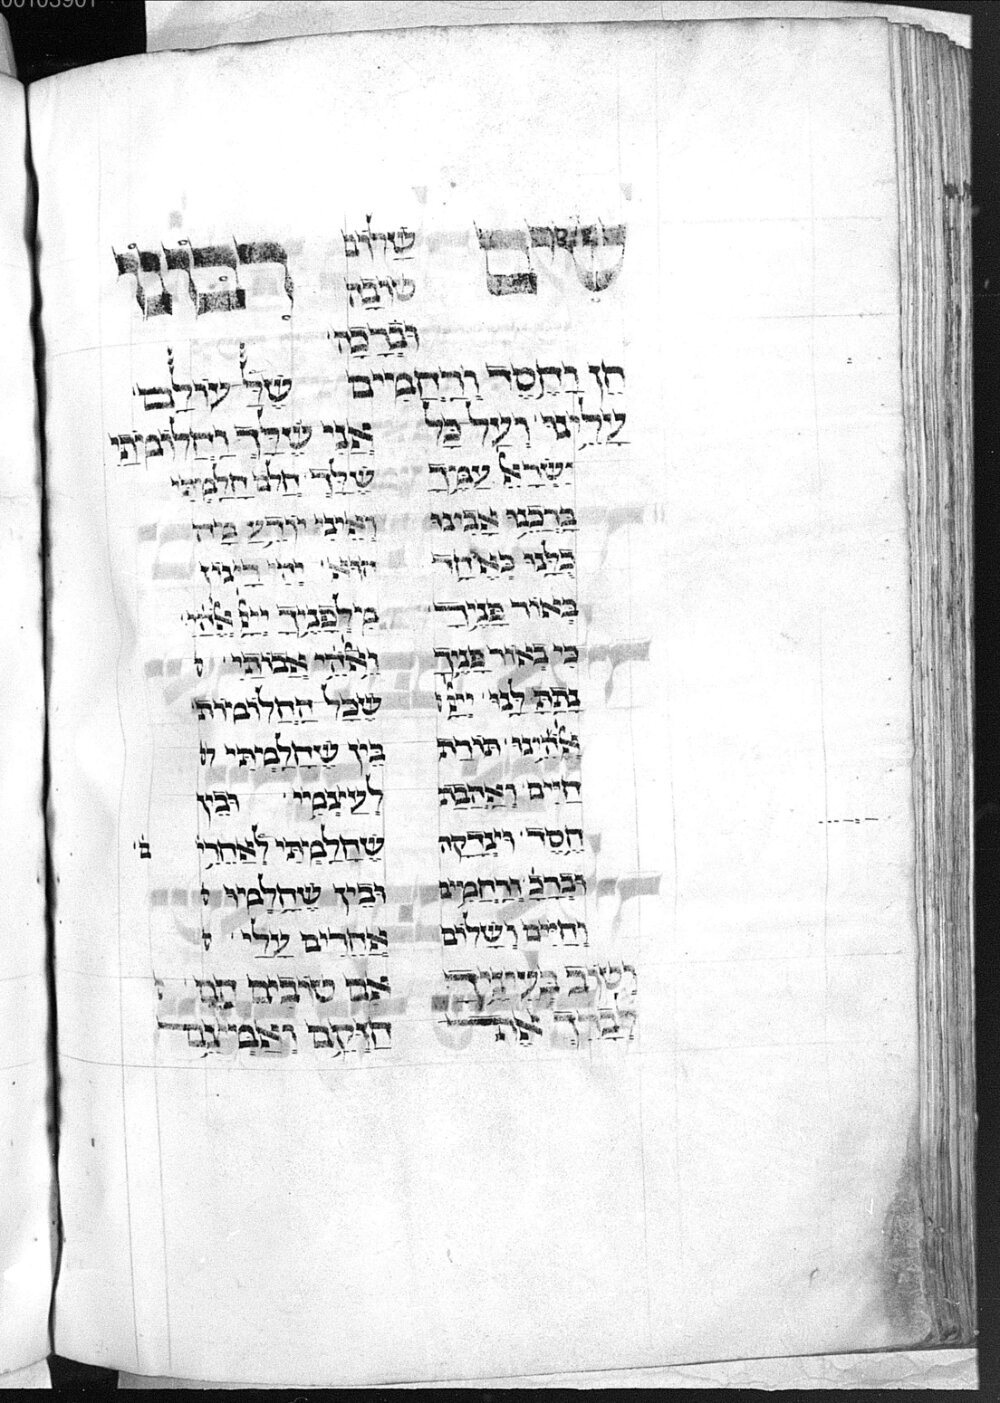 00103901
שים
שלום
טובה
וברכה
חן וחסד ורחמים
עלינו ועל כל
ישרא עמך
ברכנו אבינו
כלנו כאחד
באור פניך
כי באור פניך
נתת לנו ייי
אלהינו תורת
חיים ואהבת
חסד וצדקה
וברכ ורחמים
וחיים ושלום
וטוב בעיניך
לברך את
רבונו
של עולם
אני שלך וחלומתי
שלך חלם חלמתי
ואיני יודע מה
הוא יהי רצון
מלפניך ייי אלהי
ואלהי אבותי
שכל החלומות
בין שחלמתי
לעצמי ובין
שחלמתי לאחרי
ובין שחלמו
אחרים עלי
אם טובים הם
חזקם ואמצם